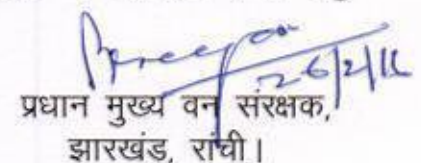 26/2/16
प्रधान मुख्य वन संरक्षक,
झारखंड, रांची।